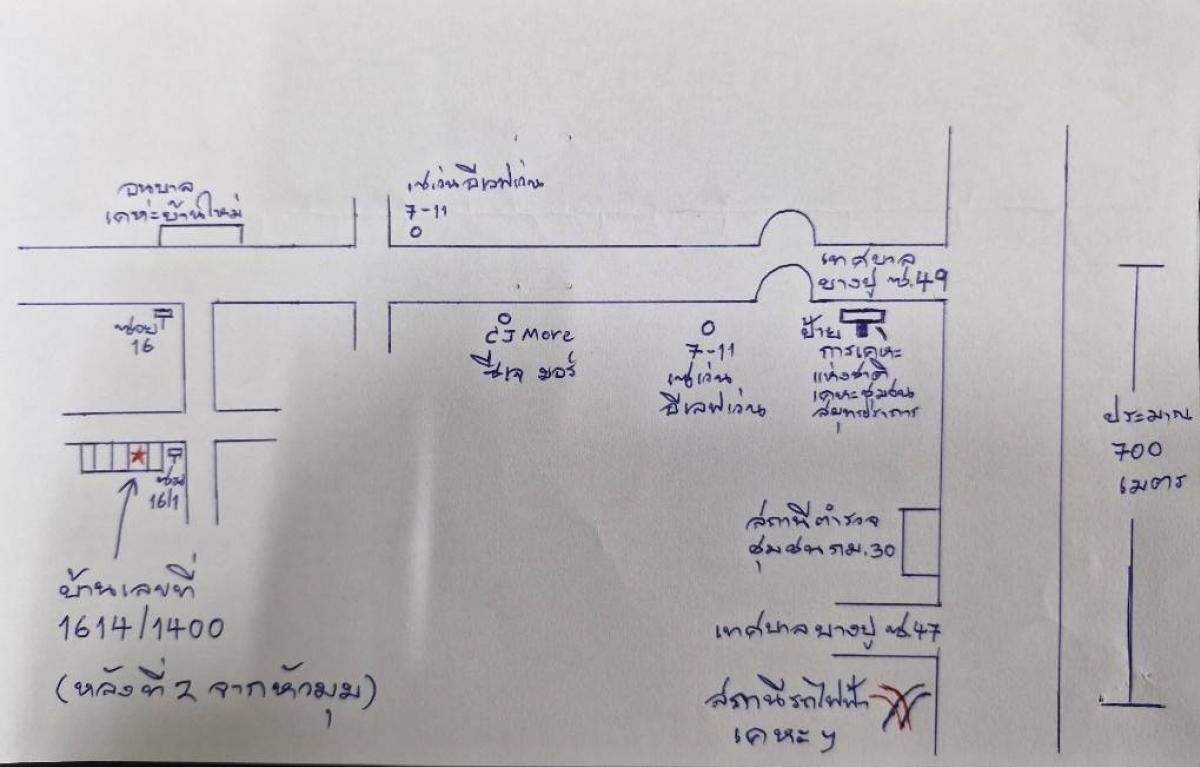 อนุบาล
เคหะบ้านใหม่
เซเว่นอีเลฟเว่น
7-11
เทศบาล
บางปู ซ.49
ซอย
16
CJ More
ซีเจ มอร์
7-11
เซเว่น
อีเลฟเว่น
ป้าย
การเคหะ
แห่งชาติ
เคหะชุมชน
สมุทรปราการ
ประมาณ
700
เมตร
ซอย
16/1
สถานีตำรวจ
ชุมชน กม.30
บ้านเลขที่
1614/1400
(หลังที่ 2 จากหัวมุม)
เทศบาลบางปู ซ.47
สถานีรถไฟฟ้า
เคหะฯ